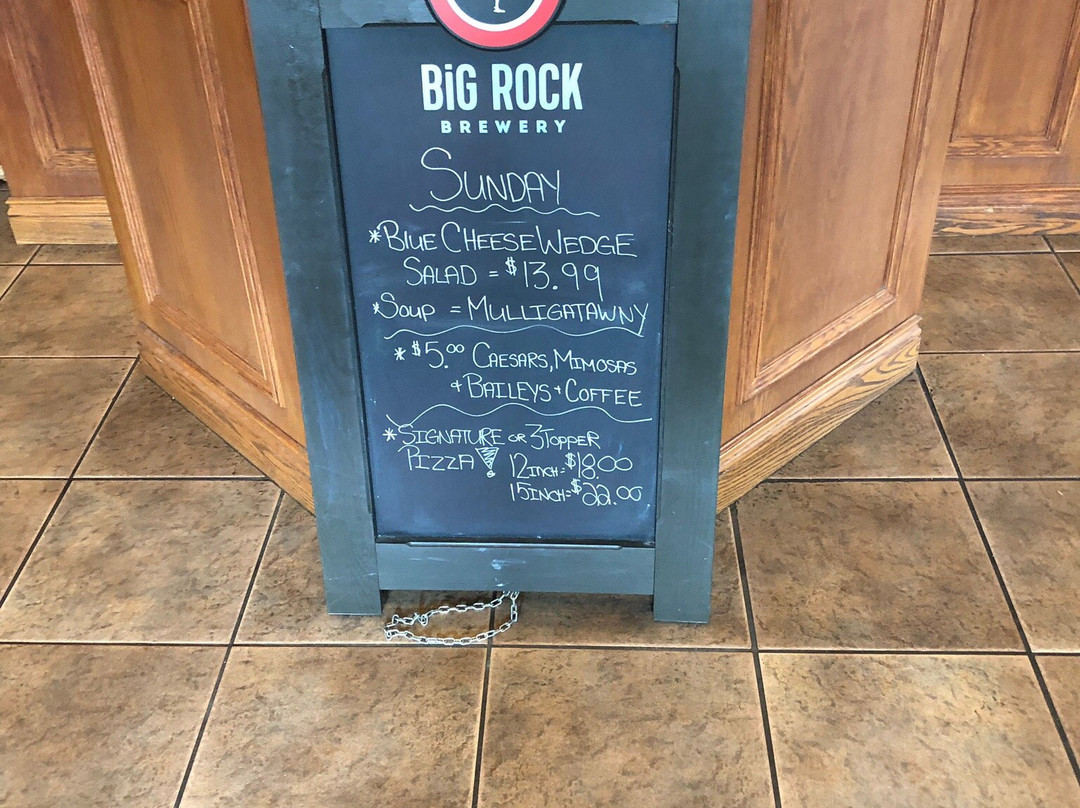 BiG ROCK
BREWERY
SUNDAY
*BLUE CHEESE WEDGE
SALAD = $13.99
*SOUP = MULLIGATAWNY
* $5.00 CAESARS, MIMOSAS
+ BAILEYS + COFFEE
*SIGNATURE OR 3 TOPPER
PIZZA 12INCH = $18.00
15INCH = $22.00